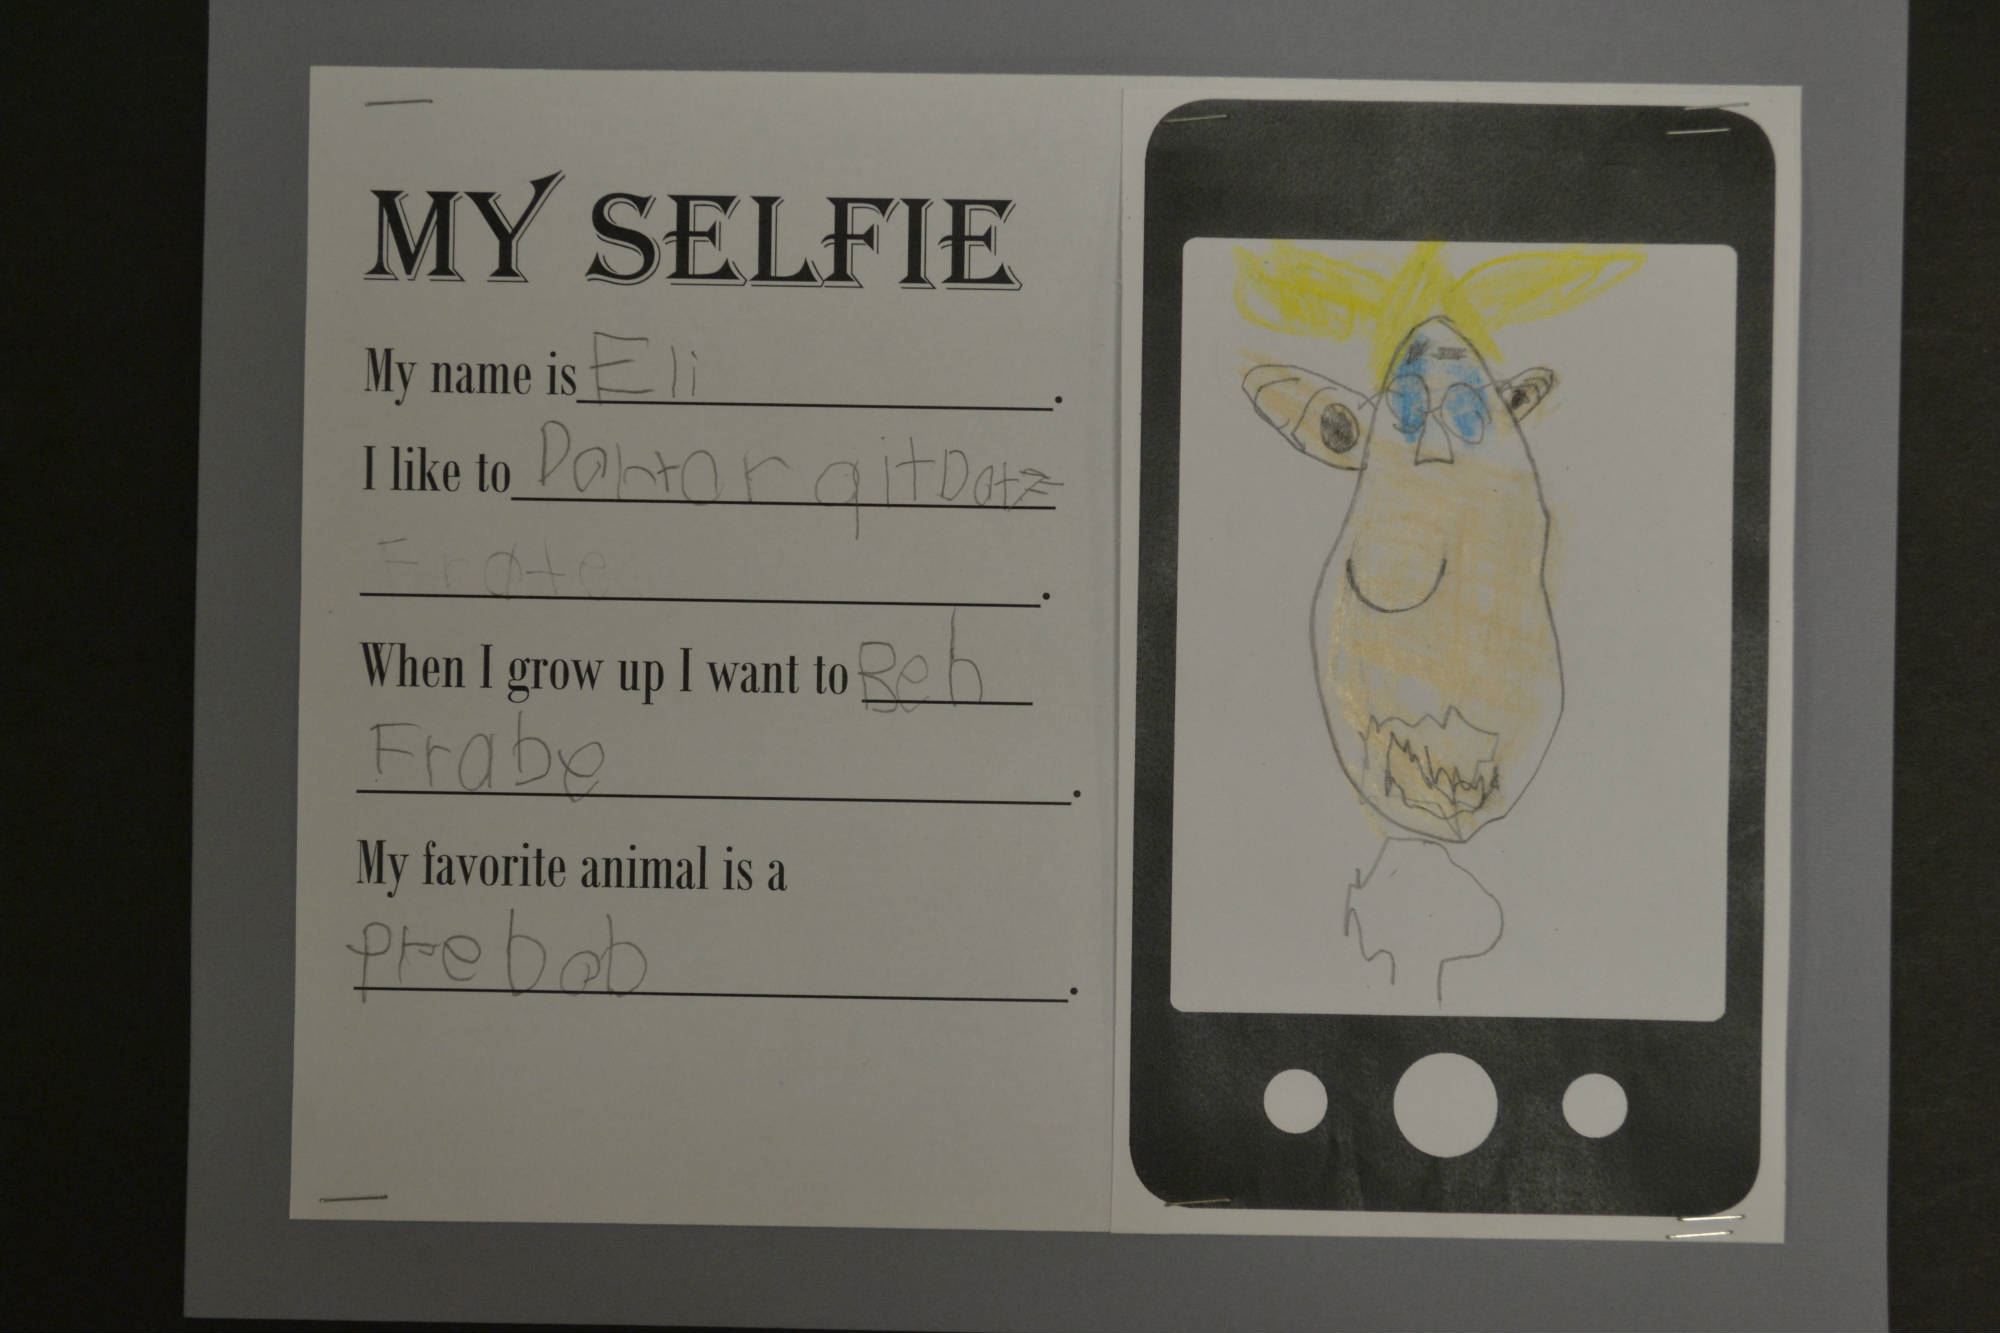 MY SELFIE
My name is Eli.
I like to
Frate.
When I grow up I want to Beh
Frabe.
My favorite animal is a
prebob.